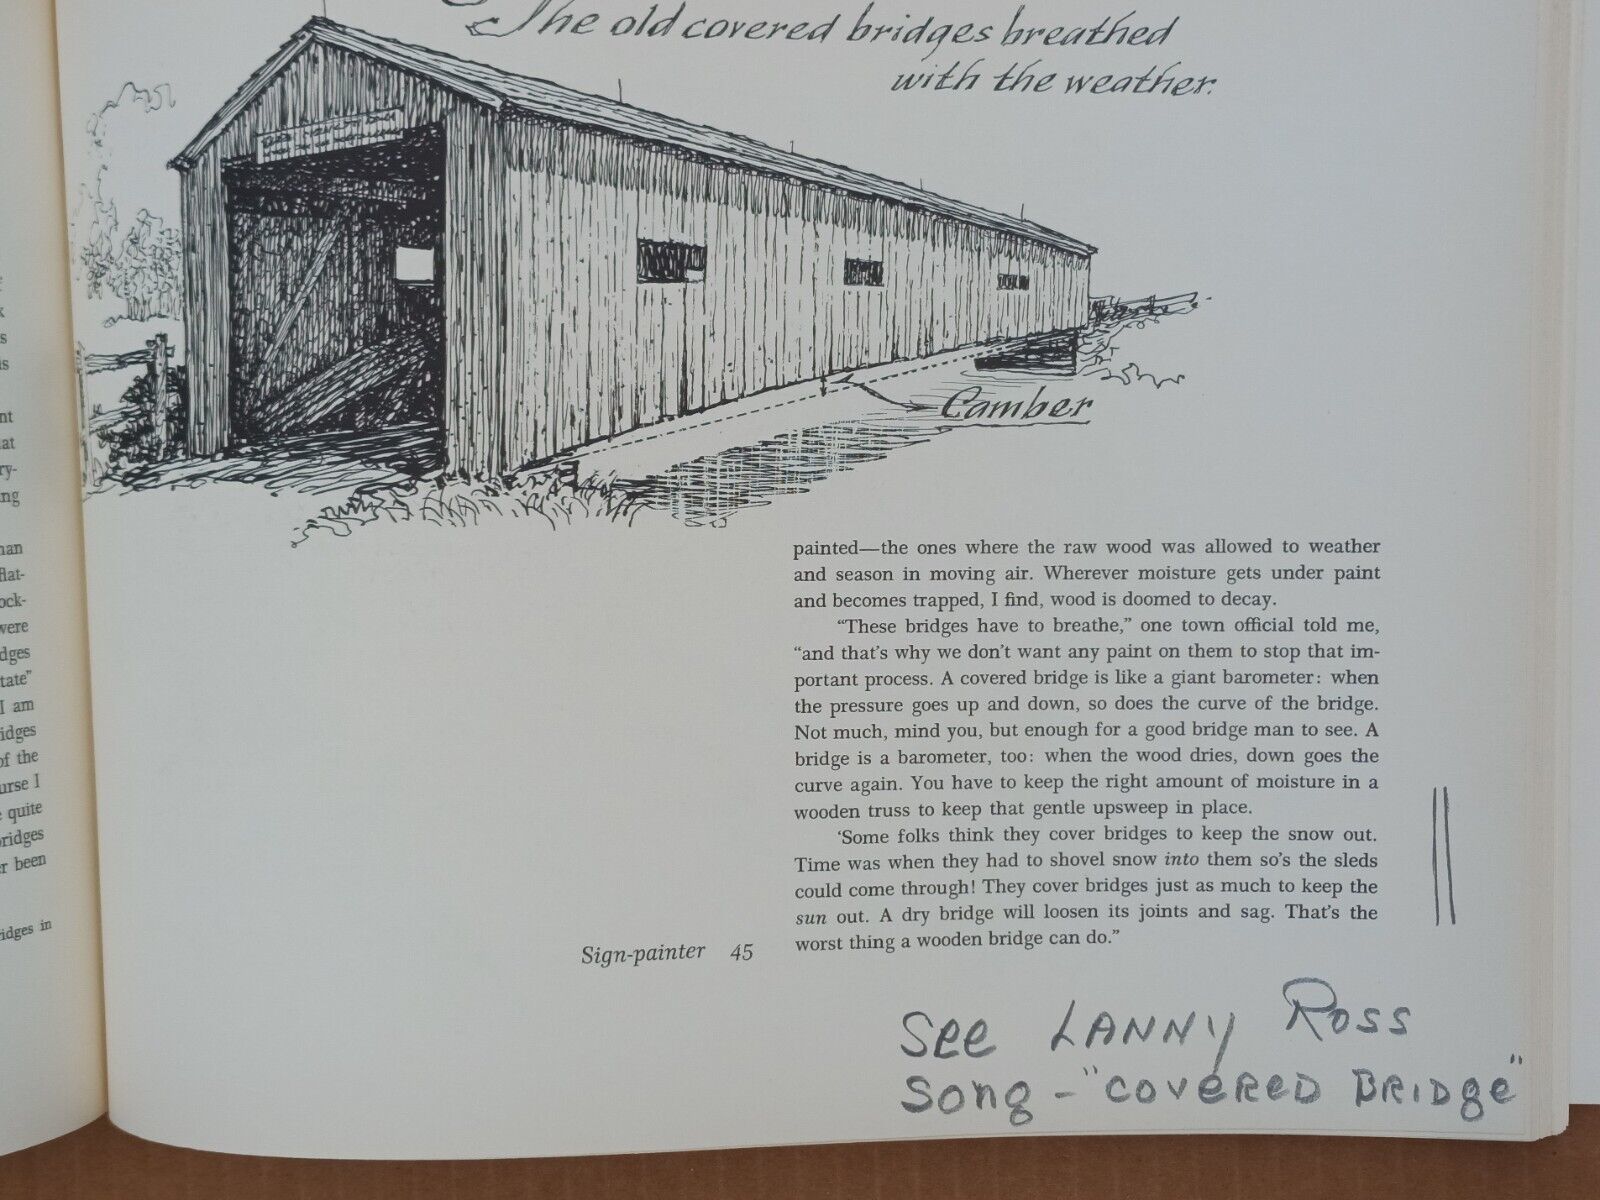 The old covered bridges breathed
with the weather.
Camber
painted—the ones where the raw wood was allowed to weather
and season in moving air. Wherever moisture gets under paint
and becomes trapped, I find, wood is doomed to decay.
“These bridges have to breathe,” one town official told me,
“and that’s why we don’t want any paint on them to stop that im-
portant process. A covered bridge is like a giant barometer: when
the pressure goes up and down, so does the curve of the bridge.
Not much, mind you, but enough for a good bridge man to see. A
bridge is a barometer, too: when the wood dries, down goes the
curve again. You have to keep the right amount of moisture in a
wooden truss to keep that gentle upsweep in place.
‘Some folks think they cover bridges to keep the snow out.
Time was when they had to shovel snow into them so’s the sleds
could come through! They cover bridges just as much to keep the
sun out. A dry bridge will loosen its joints and sag. That’s the
worst thing a wooden bridge can do.”
Sign-painter 45
See LANNY ROSS
Song - "COVERED BRIDge"
man
flat-
ock-
were
dges
tate”
I am
idges
of the
urse I
quite
bridges
r been
idges in